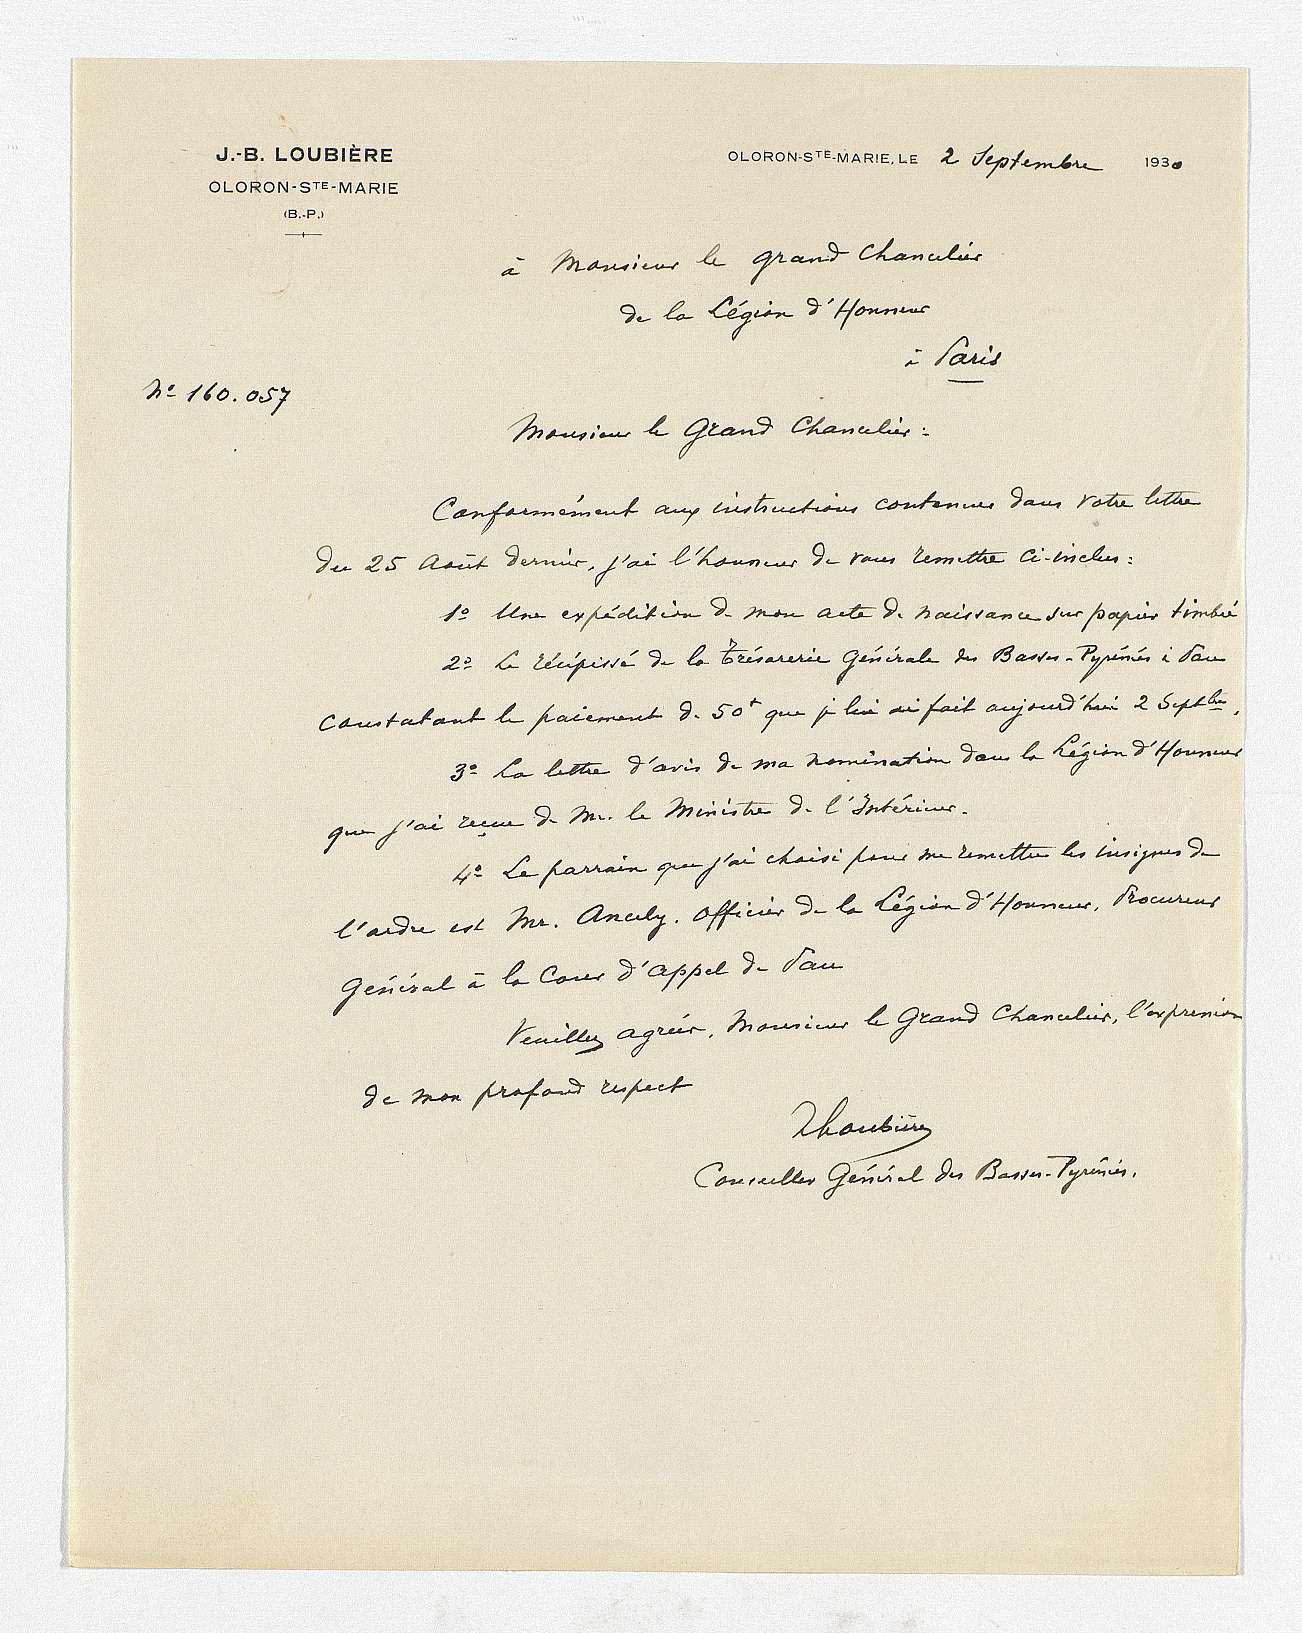 J.-B. LOUBIÈRE
OLORON-STE-MARIE
(B.-P.)
OLORON-STE-MARIE, LE 2 Septembre 1930
à Monsieur le Grand Chancelier
de la Légion d'Honneur
à Paris
No 160.057
Monsieur le Grand Chancelier :
Conformément aux instructions contenues dans votre lettre
du 25 Août dernier, j'ai l'honneur de vous remettre ci-inclus :
1o Une expédition de mon acte de naissance sur papier timbré
2o Le récépissé de la Trésorerie Générale des Basses-Pyrénées à Pau
constatant le paiement de 50f que je lui ai fait aujourd'hui 2 Septbre,
3o La lettre d'avis de ma nomination dans la Légion d'Honneur
que j'ai reçue de Mr. le Ministre de l'Intérieur.
4o Le parrain que j'ai choisi pour me remettre les insignes de
l'ordre est Mr. Ancely, Officier de la Légion d'Honneur, Procureur
Général à la Cour d'Appel de Pau
Veuillez agréer, Monsieur le Grand Chancelier, l'expression
de mon profond respect
Loubière
Conseiller Général des Basses-Pyrénées.